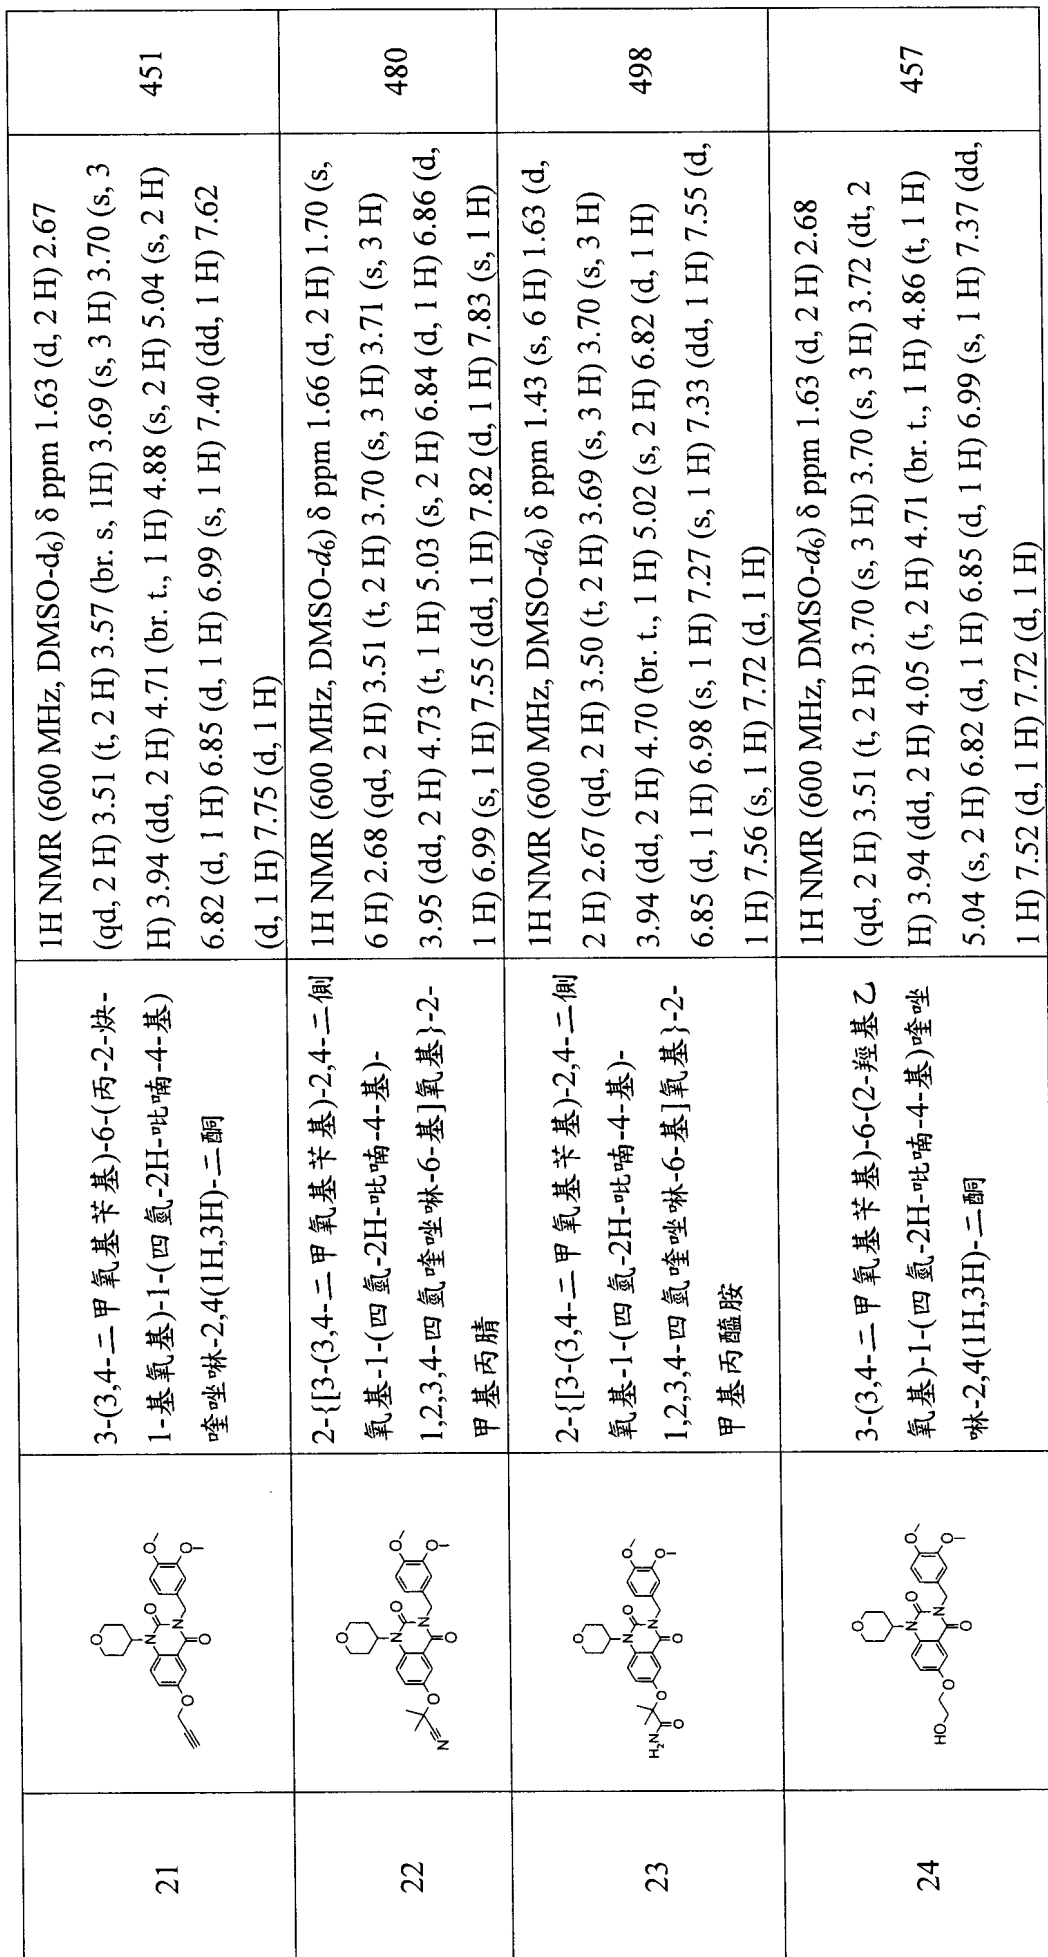 21
3-(3,4-二甲氧基苄基)-6-(丙-2-炔-
1-基氧基)-1-(四氫-2H-吡喃-4-基)
喹唑啉-2,4(1H,3H)-二酮
1H NMR (600 MHz, DMSO-d6) δ ppm 1.63 (d, 2 H) 2.67
(qd, 2 H) 3.51 (t, 2 H) 3.57 (br. s, 1H) 3.69 (s, 3 H) 3.70 (s, 3
H) 3.94 (dd, 2 H) 4.71 (br. t., 1 H) 4.88 (s, 2 H) 5.04 (s, 2 H)
6.82 (d, 1 H) 6.85 (d, 1 H) 6.99 (s, 1 H) 7.40 (dd, 1 H) 7.62
(d, 1 H) 7.75 (d, 1 H)
451
22
2-{[3-(3,4-二甲氧基苄基)-2,4-二側
氧基-1-(四氫-2H-吡喃-4-基)-
1,2,3,4-四氫喹唑啉-6-基]氧基}-2-
甲基丙腈
1H NMR (600 MHz, DMSO-d6) δ ppm 1.66 (d, 2 H) 1.70 (s,
6 H) 2.68 (qd, 2 H) 3.51 (t, 2 H) 3.70 (s, 3 H) 3.71 (s, 3 H)
3.95 (dd, 2 H) 4.73 (t, 1 H) 5.03 (s, 2 H) 6.84 (d, 1 H) 6.86 (d,
1 H) 6.99 (s, 1 H) 7.55 (dd, 1 H) 7.82 (d, 1 H) 7.83 (s, 1 H)
480
23
2-{[3-(3,4-二甲氧基苄基)-2,4-二側
氧基-1-(四氫-2H-吡喃-4-基)-
1,2,3,4-四氫喹唑啉-6-基]氧基}-2-
甲基丙醯胺
1H NMR (600 MHz, DMSO-d6) δ ppm 1.43 (s, 6 H) 1.63 (d,
2 H) 2.67 (qd, 2 H) 3.50 (t, 2 H) 3.69 (s, 3 H) 3.70 (s, 3 H)
3.94 (dd, 2 H) 4.70 (br. t., 1 H) 5.02 (s, 2 H) 6.82 (d, 1 H)
6.85 (d, 1 H) 6.98 (s, 1 H) 7.27 (s, 1 H) 7.33 (dd, 1 H) 7.55 (d,
1 H) 7.56 (s, 1 H) 7.72 (d, 1 H)
498
24
3-(3,4-二甲氧基苄基)-6-(2-羥基乙
氧基)-1-(四氫-2H-吡喃-4-基)喹唑
啉-2,4(1H,3H)-二酮
1H NMR (600 MHz, DMSO-d6) δ ppm 1.63 (d, 2 H) 2.68
(qd, 2 H) 3.51 (t, 2 H) 3.70 (s, 3 H) 3.70 (s, 3 H) 3.72 (dt, 2
H) 3.94 (dd, 2 H) 4.05 (t, 2 H) 4.71 (br. t., 1 H) 4.86 (t, 1 H)
5.04 (s, 2 H) 6.82 (d, 1 H) 6.85 (d, 1 H) 6.99 (s, 1 H) 7.37 (dd,
1 H) 7.52 (d, 1 H) 7.72 (d, 1 H)
457